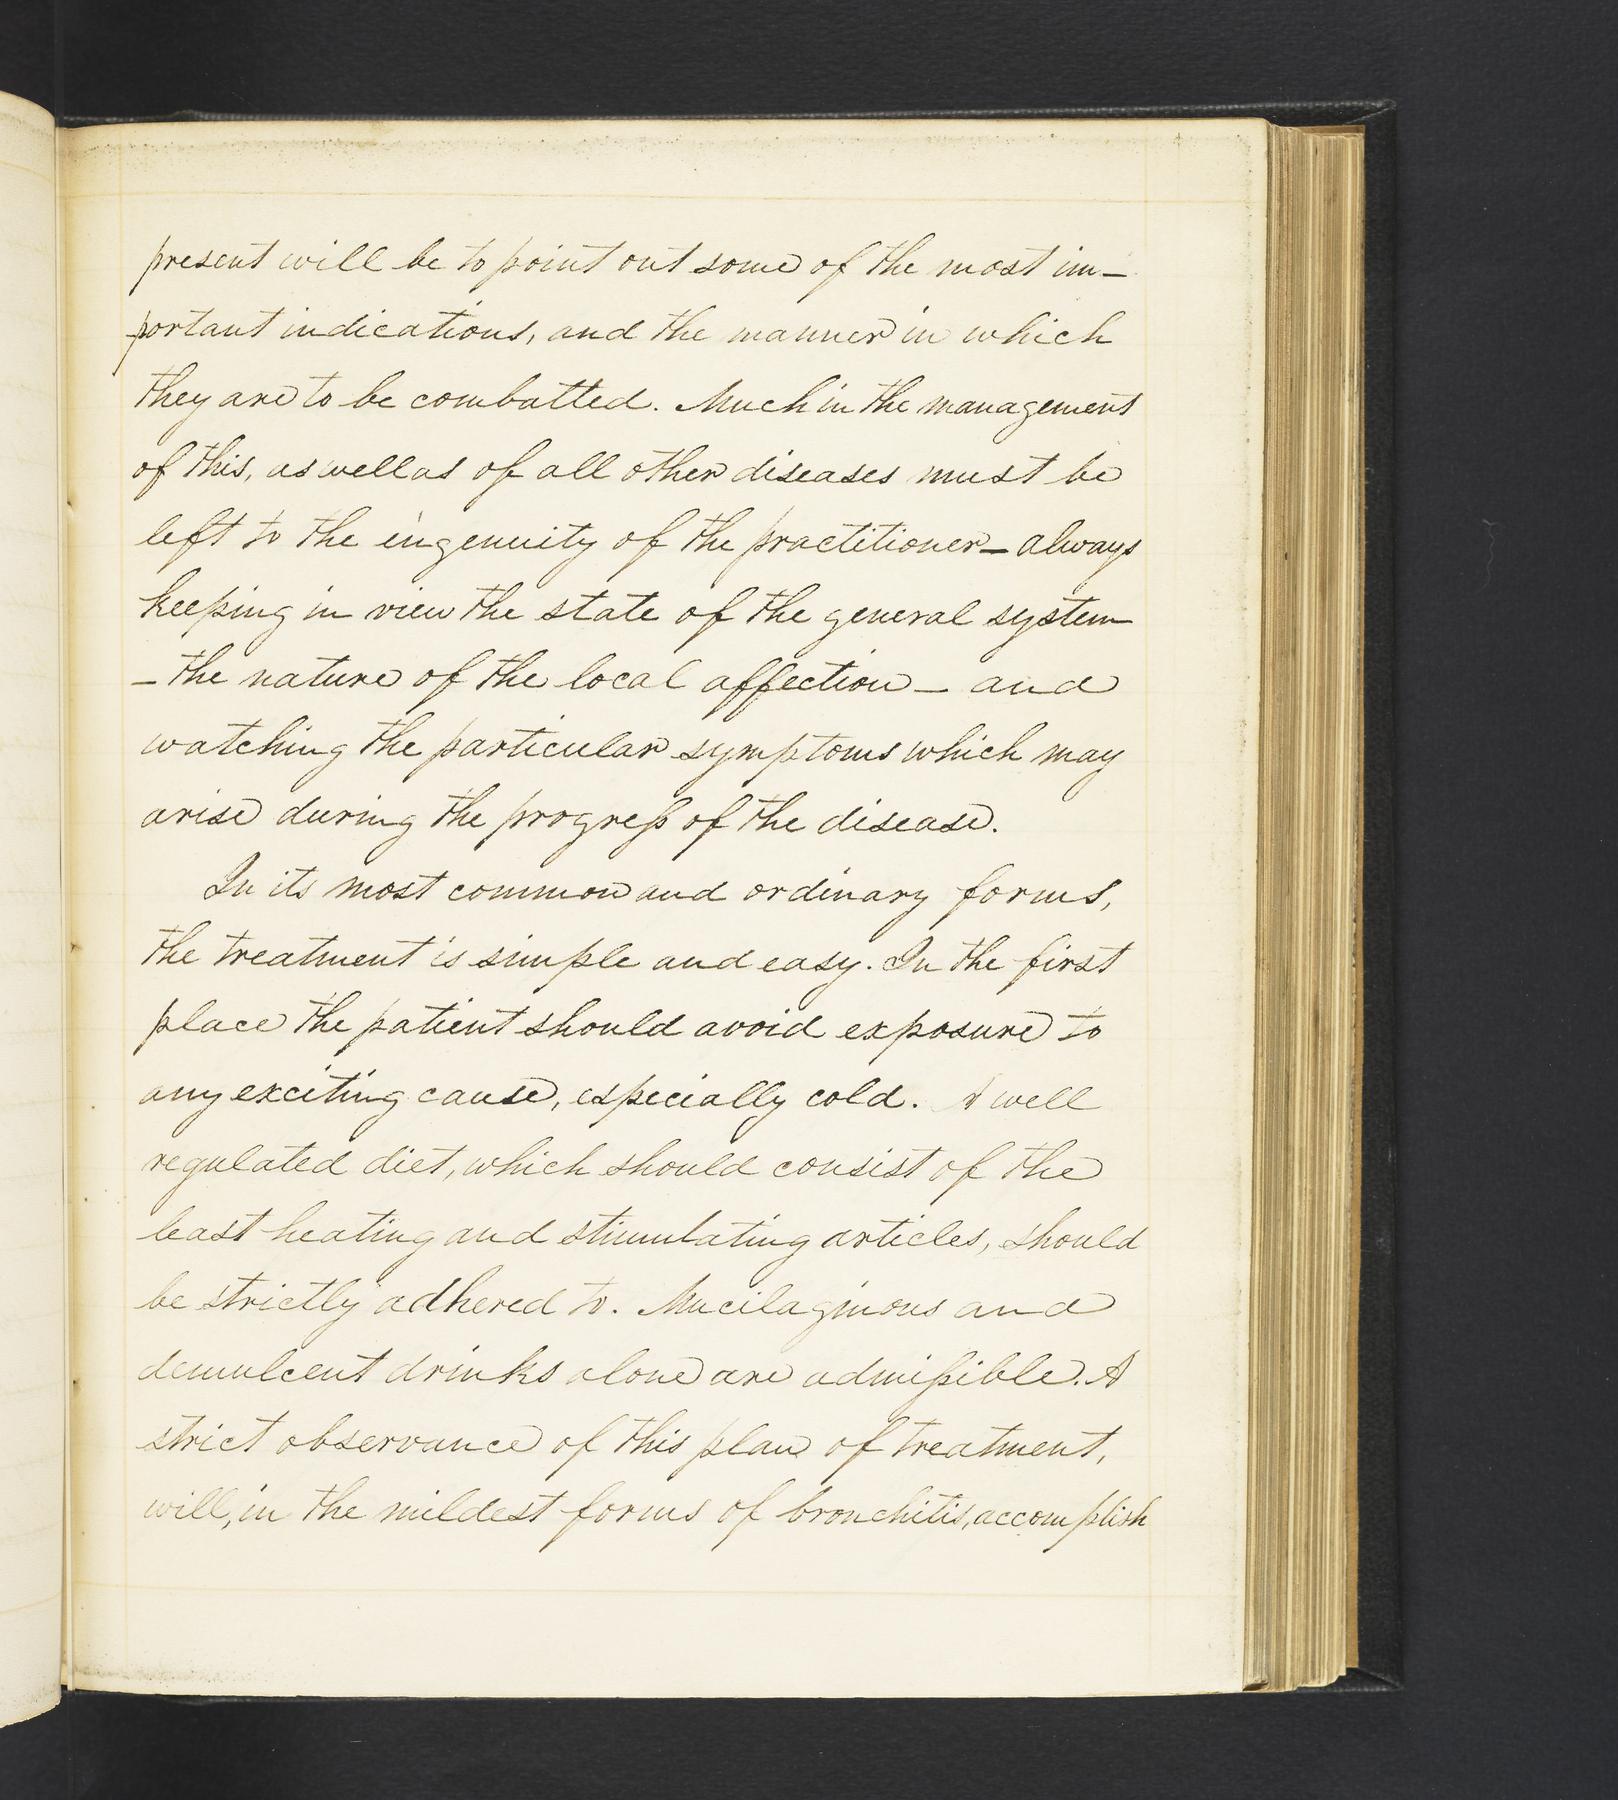 present will be to point out some of the most im-
portant indications, and the manner in which
they are to be combatted. Much in the management
of this, as well as of all other diseases must be
left to the ingenuity of the practitioner — always
keeping in view the state of the general system
— the nature of the local affection — and
watching the particular symptoms which may
arise during the progress of the disease.
In its most common and ordinary forms,
the treatment is simple and easy. In the first
place the patient should avoid exposure to
any exciting cause, especially cold. A well
regulated diet, which should consist of the
least heating and stimulating articles, should
be strictly adhered to. Mucilaginous and
demulcent drinks alone are admissible. A
strict observance of this plan of treatment,
will, in the mildest forms of bronchitis, accomplish